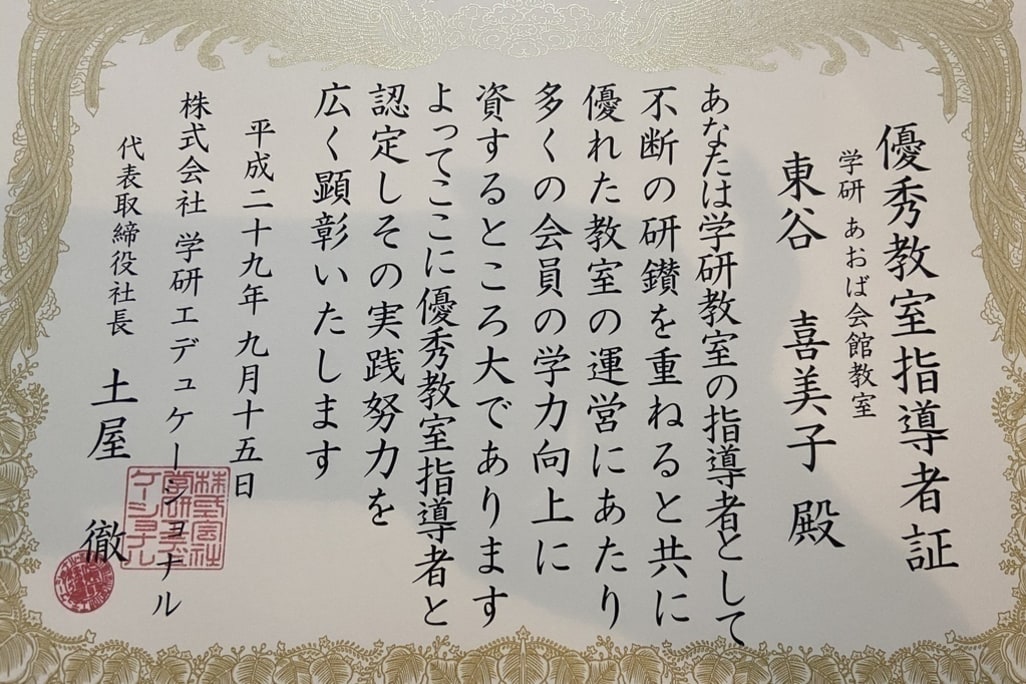 優秀教室指導者証
学研 あおば会館教室
東谷 喜美子 殿
あなたは学研教室の指導者として
不断の研鑚を重ねると共に
優れた教室の運営にあたり
多くの会員の学力向上に
資するところ大であります
よってここに優秀教室指導者と
認定しその実践努力を
広く顕彰いたします
平成二十九年 九月十五日
株式会社 学研エデュケーショナル
代表取締役社長 土屋 徹
株式会社
学研エデュ
ケーショナル